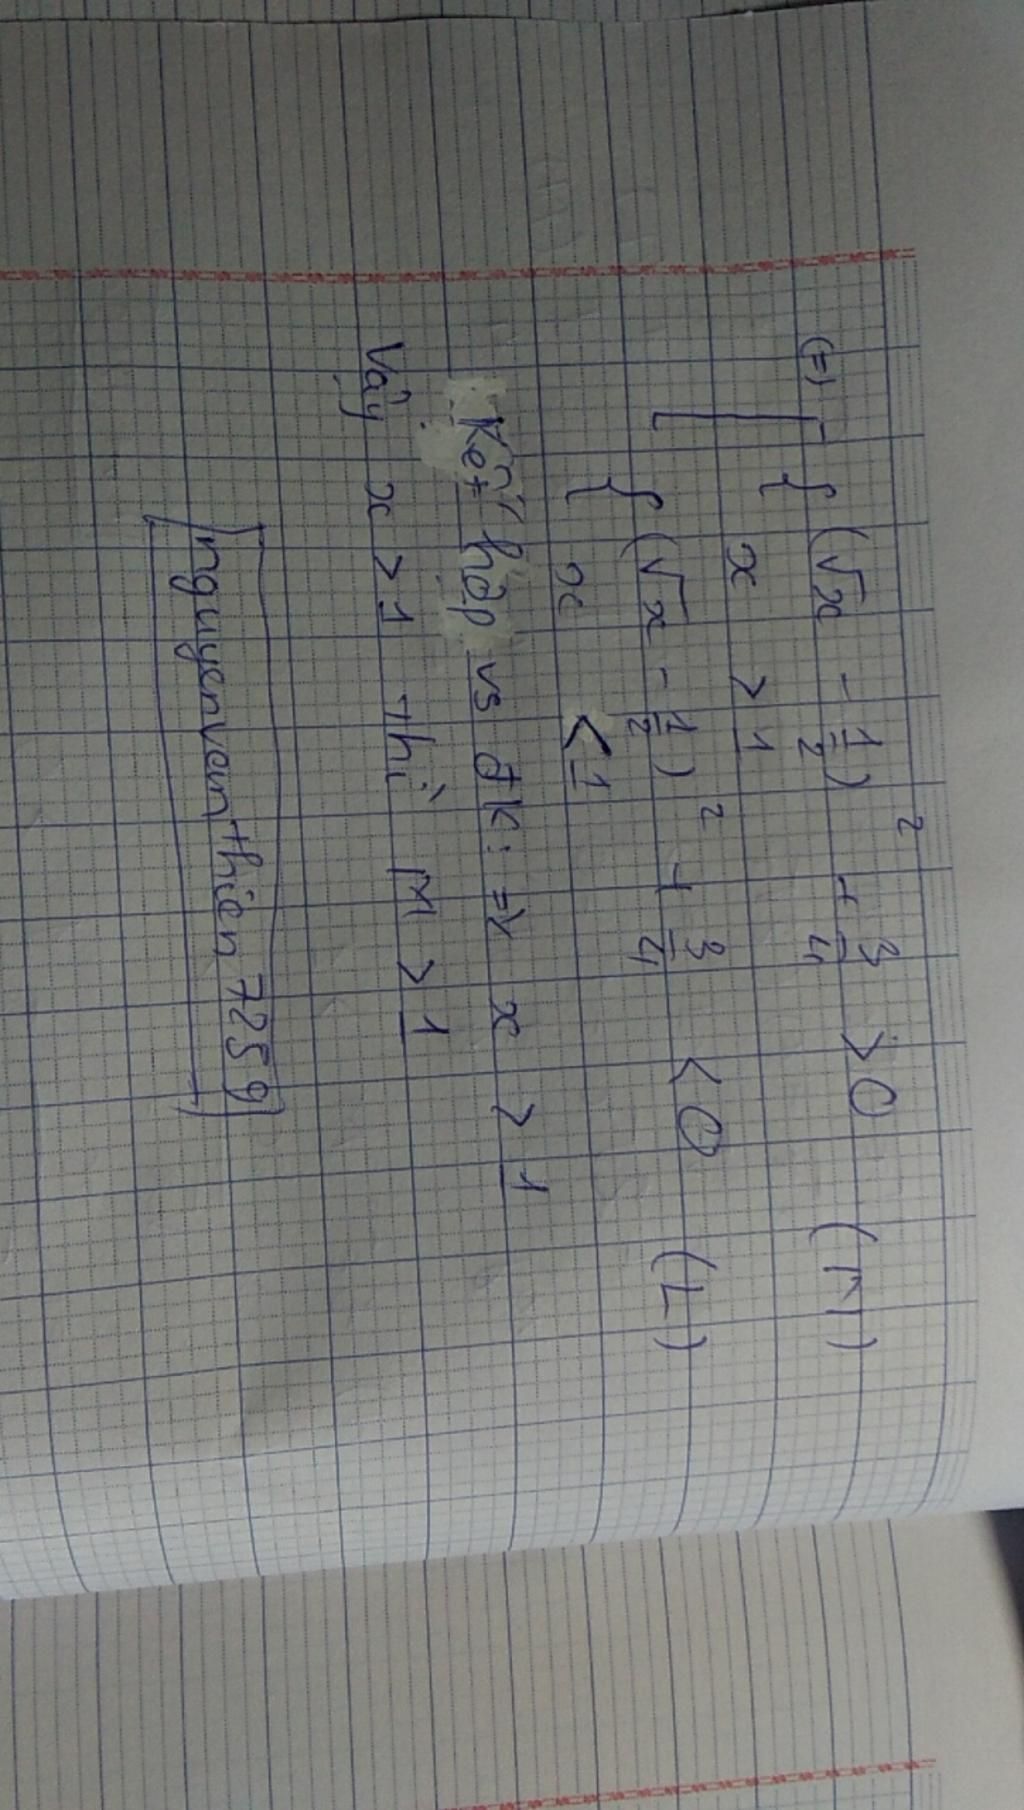 (=) [ { (√x - 1/2)² + 3/4 > 0 (M)
x > 1
{ (√x - 1/2)² + 3/4 < 0 (L)
x < 1
Kết hợp vs đk: => x > 1
Vậy x > 1 thì M > 1
nguyenvanthien7259